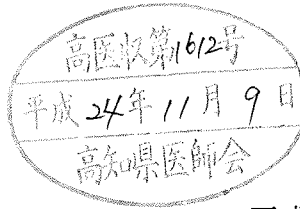 高医収第1612号
平成24年11月9日
高知県医師会